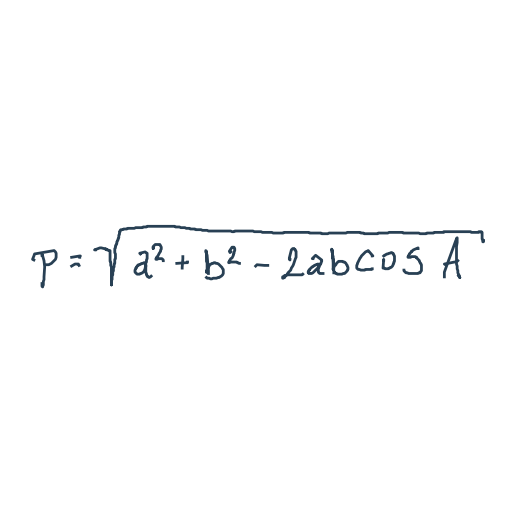 P = √(a² + b² - 2abcos A)